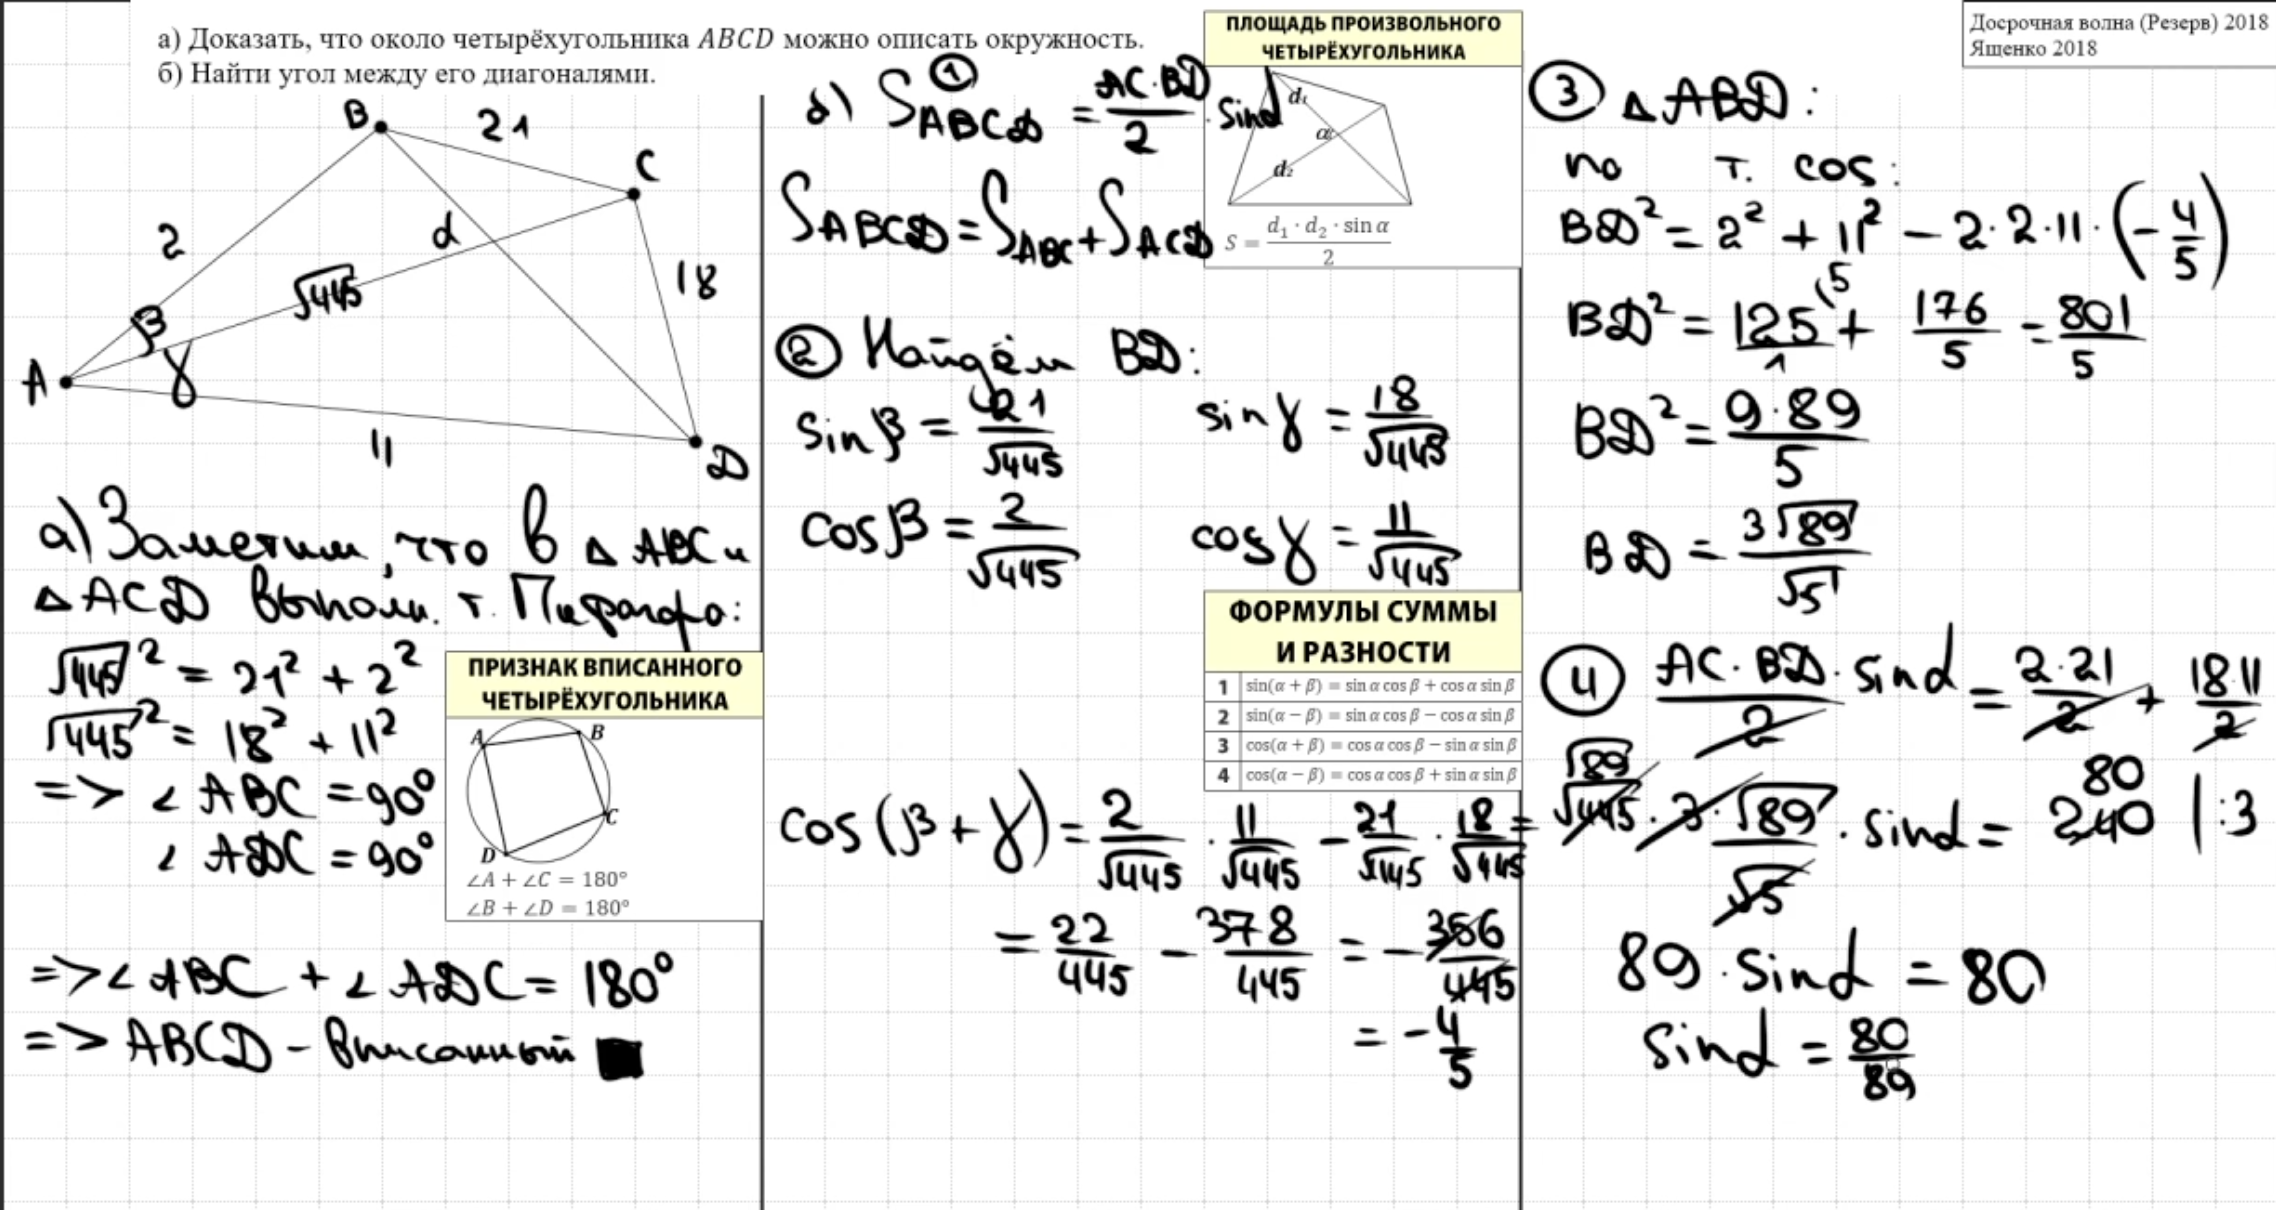 а) Доказать, что около четырёхугольника ABCD можно описать окружность.
б) Найти угол между его диагоналями.
B
21
C
2
α
√445
18
β
A
γ
11
D
а) Заметим, что в △ ABC и
△ ACD выполн. т. Пифагора:
√445² = 21² + 2²
√445² = 18² + 11²
=> ∠ ABC = 90°
∠ ADC = 90°
ПРИЗНАК ВПИСАННОГО
ЧЕТЫРЁХУГОЛЬНИКА
A
B
C
D
∠A + ∠C = 180°
∠B + ∠D = 180°
=> ∠ ABC + ∠ ADC = 180°
=> ABCD - вписанный
б) ① S ABCD = AC·BD/2 · sinα
S ABCD = S ABC + S ACD
ПЛОЩАДЬ ПРОИЗВОЛЬНОГО
ЧЕТЫРЁХУГОЛЬНИКА
d₁
α
d₂
S = d₁ · d₂ · sin α / 2
② Найдём BD:
sin β = 21/√445 sin γ = 18/√445
cos β = 2/√445 cos γ = 11/√445
ФОРМУЛЫ СУММЫ
И РАЗНОСТИ
1 sin(α + β) = sin α cos β + cos α sin β
2 sin(α − β) = sin α cos β − cos α sin β
3 cos(α + β) = cos α cos β − sin α sin β
4 cos(α − β) = cos α cos β + sin α sin β
cos (β + γ) = 2/√445 · 11/√445 - 21/√445 · 18/√445 =
= 22/445 - 378/445 = - 356/445
= - 4/5
Досрочная волна (Резерв) 2018
Ященко 2018
③ △ ABD:
по т. cos:
BD² = 2² + 11² - 2·2·11·(- 4/5)
BD² = 125/1 (5 + 176/5 = 801/5
BD² = 9·89/5
BD = 3√89/√5
④ AC·BD/2 · sinα = 2·21/2 + 18·11/2
√89 80
√445 · 3·√89/√5 · sinα = 240 | :3
89 · sinα = 80
sinα = 80/89